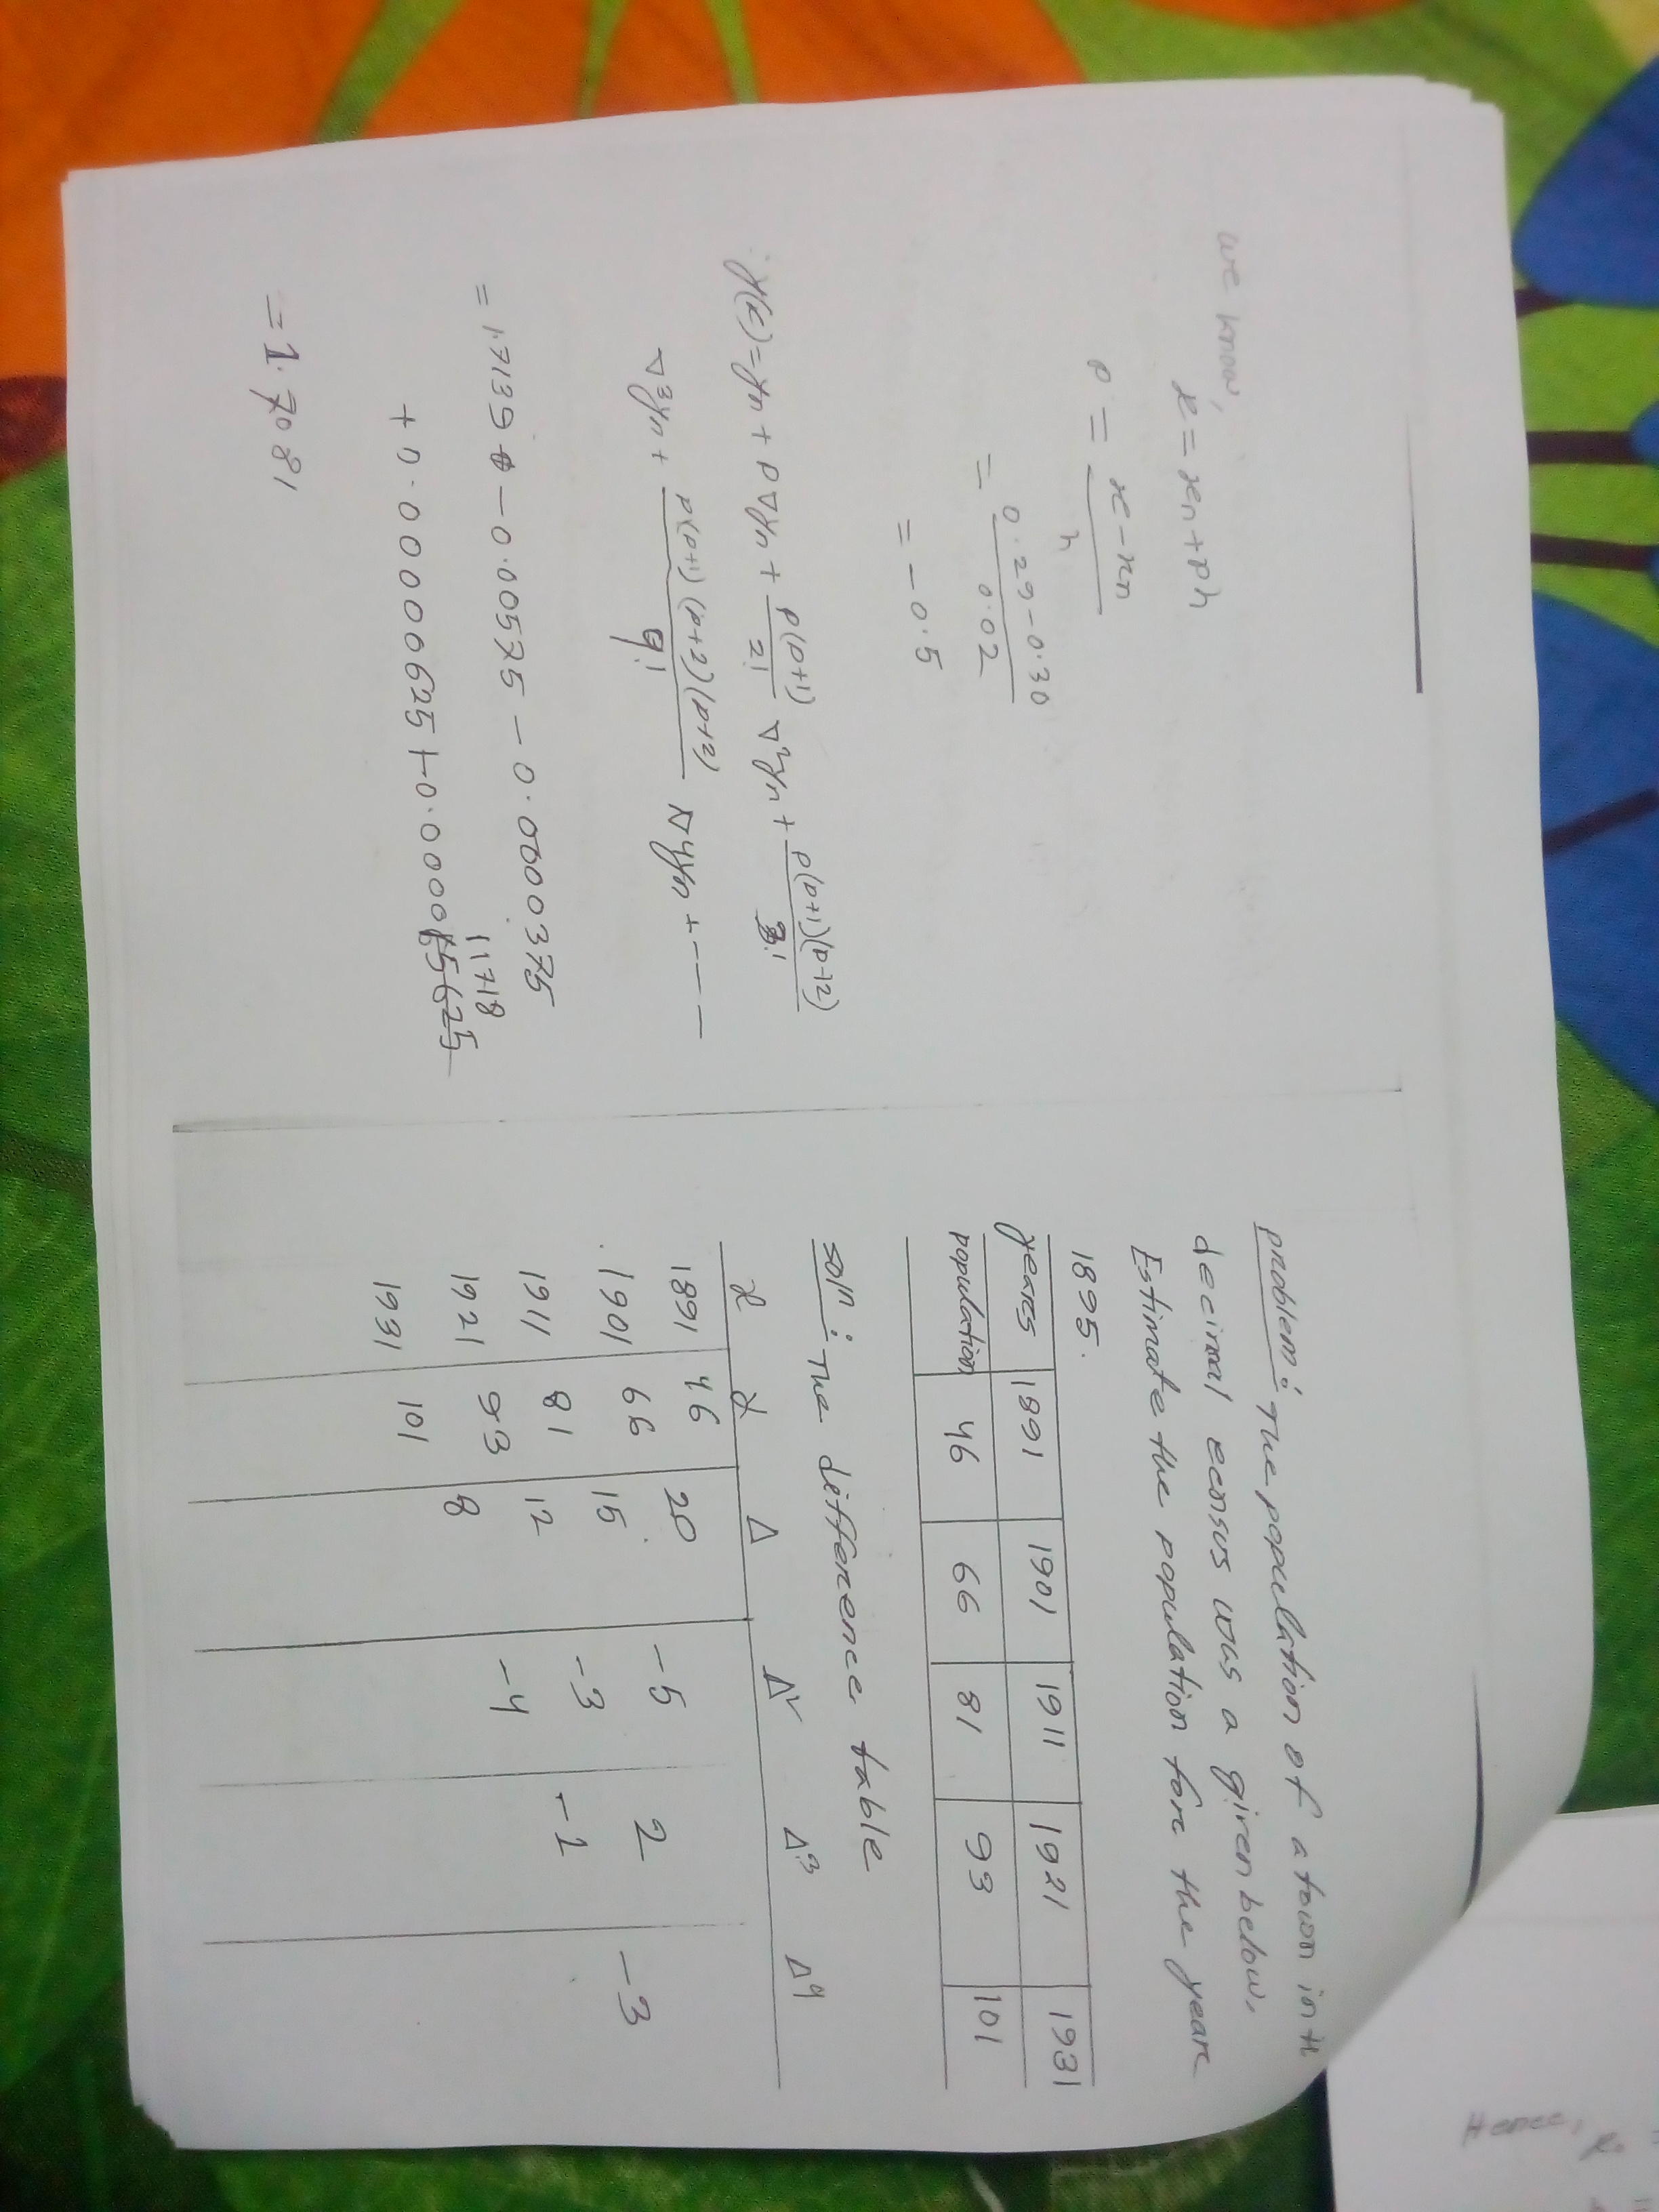 Hence, x
we know,
x = xn+ph
p = x-xn / h
= 0.29-0.30 / 0.02
= -0.5
y(x)=yn + p∇yn + p(p+1)/2! ∇²yn + p(p+1)(p+2)/3!
∇3yn + p(p+1)(p+2)(p+2)/4! ∇4yn + ----
= 1.7139 - 0.00525 - 0.0000375
11718
+ 0.00000625 + 0.0000
= 1.7081
problem: The population of a town in th
decimal ecnsus was a given below.
Estimate the population fore the yeare
1895.
years 1891 1901 1911 1921 1931
population 46 66 81 93 101
soln: The difference table
x y Δ Δ² Δ3 Δ4
1891 46 20 -5 2 -3
1901 66 15 -3 -1
1911 81 12 -4
1921 93 8
1931 101